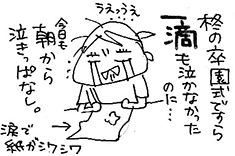 柊の卒園式ですら
一滴も泣かなかった
のに…
うえっうえ
今日も
朝から
泣きっぱなし。
涙で
紙がシワシワ